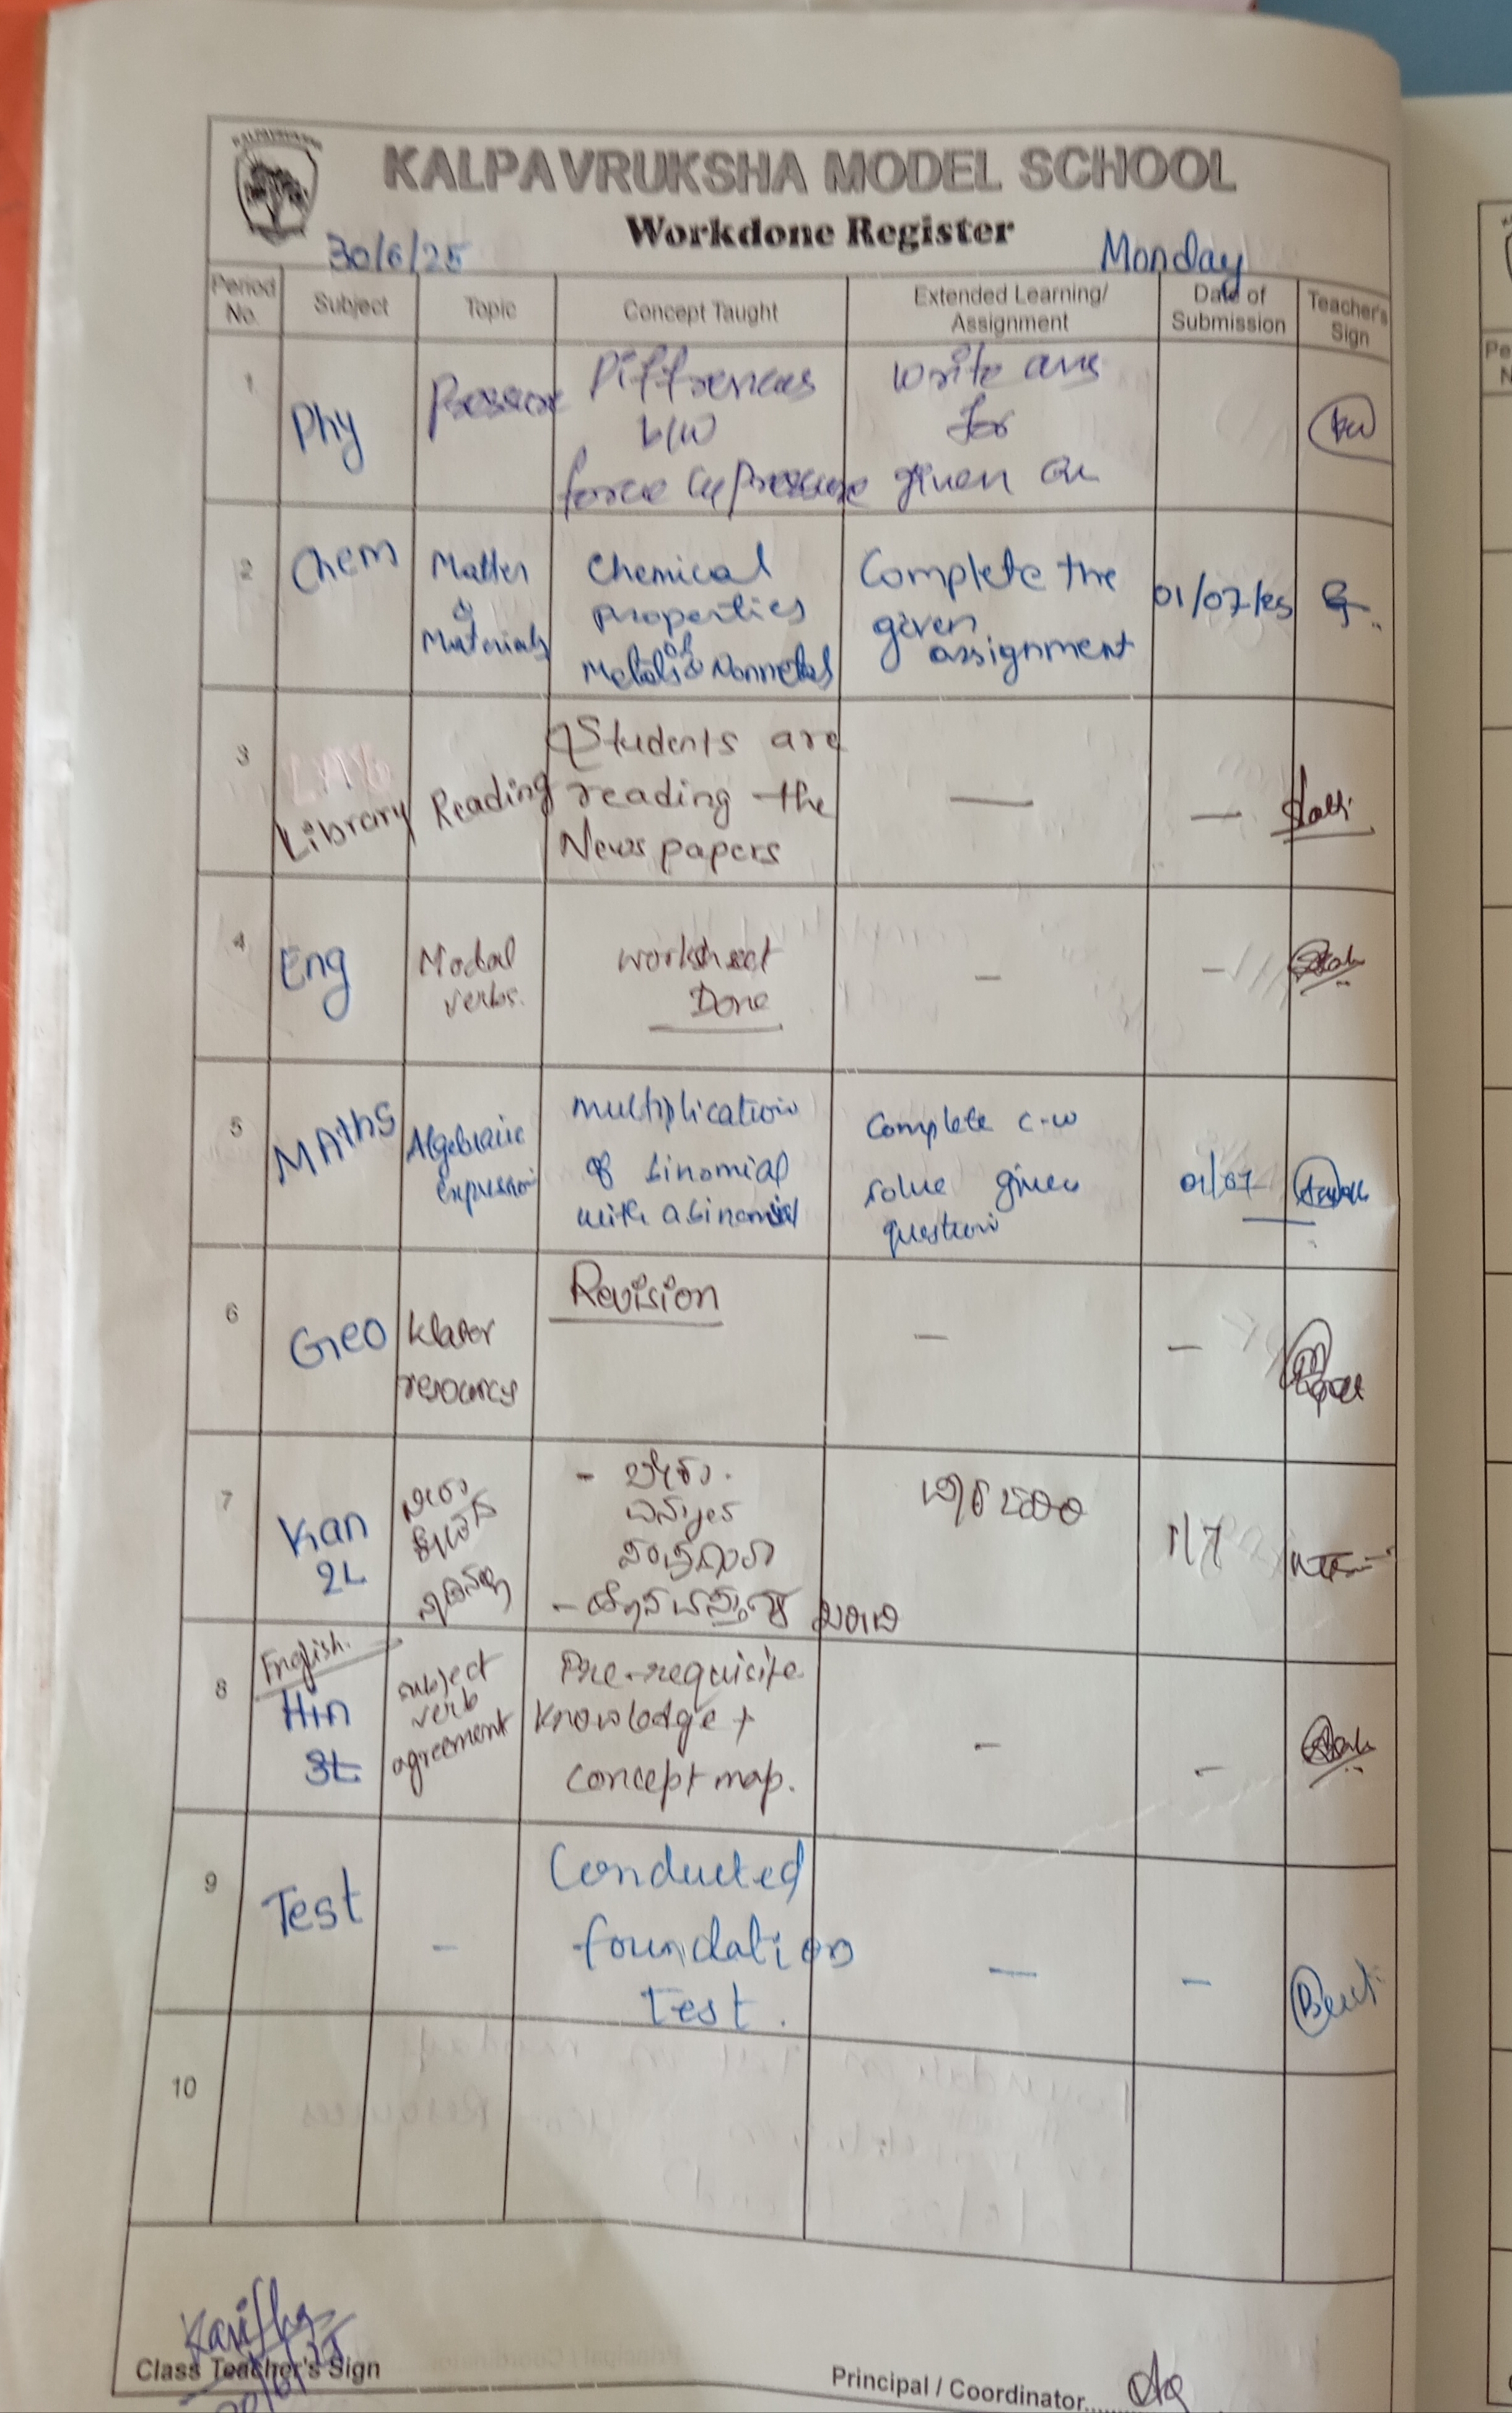 KALPAVRUKSHA
KALPAVRUKSHA MODEL SCHOOL
Workdone Register
30/6/25 Monday
Period No. Subject Topic Concept Taught Extended Learning/ Assignment Date of Submission Teacher's Sign
1 Phy Pressure Differences b/w force & pressure write ans for given Qn
2 Chem Matter & Materials Chemical properties of Metals & Nonmetals Complete the given assignment 01/07/25
3 Library Reading Students are reading the News papers — —
4 Eng Modal verbs. worksheet Done - -
5 MAths Algebraic expression multiplication of binomial with a binomial Complete c-w solve given question 01/07
6 Geo Water resources Revision — -
7 Kan 2L 1/7
8 English. Hin 3L subject verb agreement Pre-requisite knowledge + concept map. - -
9 Test - Conducted foundation Test. — -
10
Class Teacher's Sign
Principal / Coordinator......